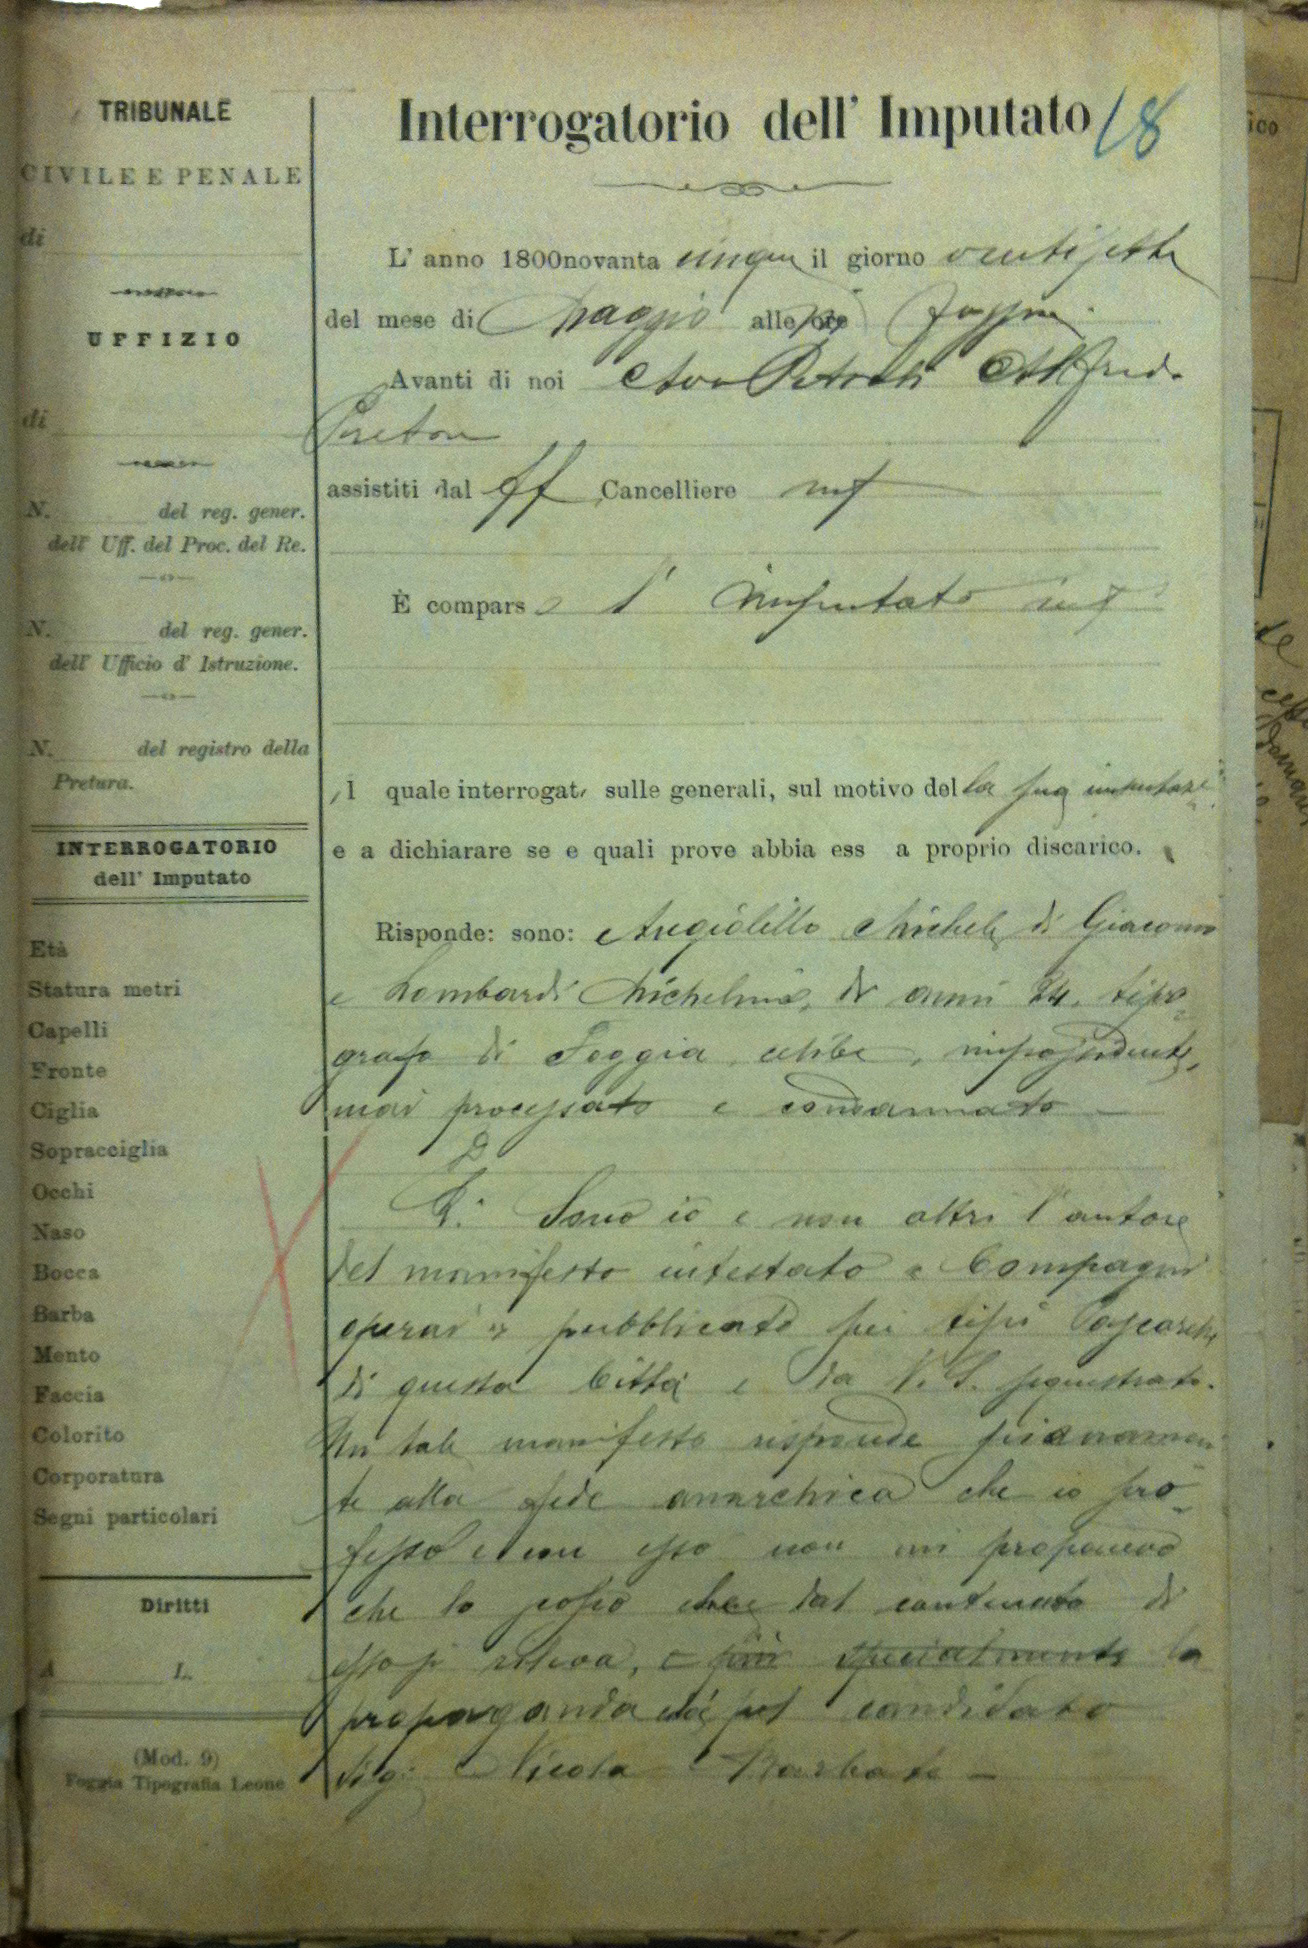 TRIBUNALE
CIVILE E PENALE
di
UFFIZIO
di
N. del reg. gener.
dell' Uff. del Proc. del Re.
N. del reg. gener.
dell' Ufficio d' Istruzione.
N. del registro della
Pretura.
INTERROGATORIO
dell' Imputato
Età
Statura metri
Capelli
Fronte
Ciglia
Sopracciglia
Occhi
Naso
Bocca
Barba
Mento
Faccia
Colorito
Corporatura
Segni particolari
Diritti
A L.
(Mod. 9)
Foggia Tipografia Leone
Interrogatorio dell' Imputato 18
L' anno 1800novanta cinque il giorno ventisette
del mese di Maggio alle ore Foggia
Avanti di noi Avv Alfredo
Pretore
assistiti dal ff Cancelliere
È compars o l' imputato
Il quale interrogat sulle generali, sul motivo della sua imputaze
e a dichiarare se e quali prove abbia ess a proprio discarico.
Risponde: sono: Angiolillo Michele di Giacomo
e Lombardi Michelina, di anni 24, tipo=
grafo di Foggia celibe, impossidente,
mai processato e condannato
D
R. Sono io e non altri l'autore
del manifesto intestato "Compagni
operai" pubblicato pei tipi
di questa Città e da V. S. sequestrato.
Un tale manifesto risponde pienamen
te alla fede anarchica che io pro=
fesso e con esso non mi proponevo
che lo scopo che dal contenuto di
esso si rileva, e più specialmente la
propaganda pel candidato
Sig: Nicola Barbato